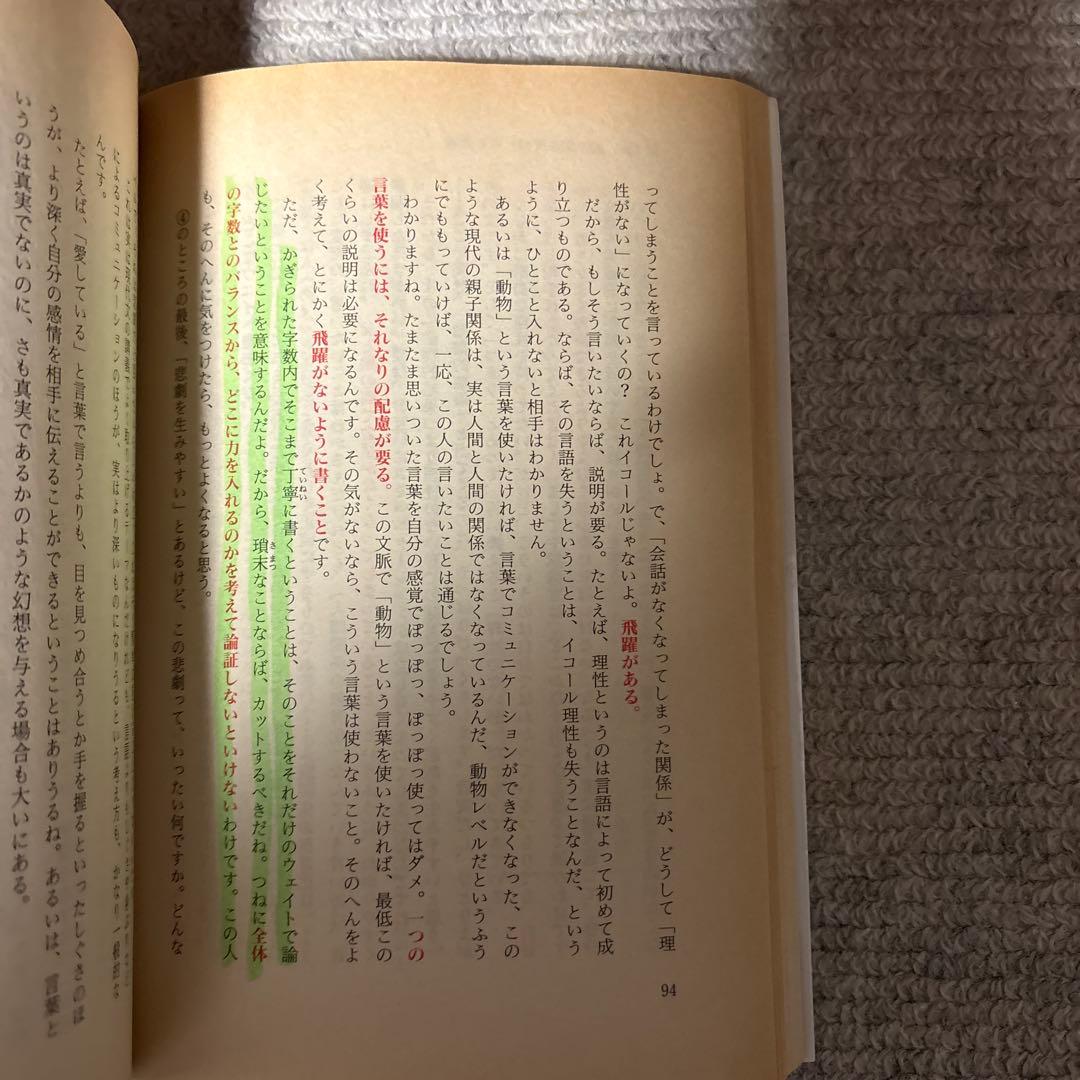 ってしまうことを言っているわけでしょ。で、「会話がなくなってしまった関係」が、どうして「理
性がない」になっていくの？　これイコールじゃないよ。飛躍がある。
だから、もしそう言いたいならば、説明が要る。たとえば、理性というのは言語によって初めて成
り立つものである。ならば、その言語を失うということは、イコール理性も失うことなんだ、という
ように、ひとこと入れないと相手はわかりません。
あるいは「動物」という言葉を使いたければ、言葉でコミュニケーションができなくなった、この
ような現代の親子関係は、実は人間と人間の関係ではなくなっているんだ、動物レベルだというふう
にでももっていけば、一応、この人の言いたいことは通じるでしょう。
わかりますね。たまたま思いついた言葉を自分の感覚でぽっぽっ、ぽっぽっ使ってはダメ。一つの
言葉を使うには、それなりの配慮が要る。この文脈で「動物」という言葉を使いたければ、最低この
くらいの説明は必要になるんです。その気がないなら、こういう言葉は使わないこと。そのへんをよ
く考えて、とにかく飛躍がないように書くことです。
ただ、かぎられた字数内でそこまで丁寧に書くということは、そのことをそれだけのウェイトで論
じたいということを意味するんだよ。だから、瑣末なことならば、カットするべきだね。つねに全体
の字数とのバランスから、どこに力を入れるのかを考えて論証しないといけないわけです。この人
も、そのへんに気をつけたら、もっとよくなると思う。
④のところの最後、「悲劇を生みやすい」とあるけど、この悲劇って、いったい何ですか。どんな
94
によるコミュニケーションのほうが、実はより深いものになりうるという考え方も、かなり一般的な
んです。
たとえば、「愛している」と言葉で言うよりも、目を見つめ合うとか手を握るといったしぐさのほ
うが、より深く自分の感情を相手に伝えることができるということはありうるね。あるいは、言葉と
いうのは真実でないのに、さも真実であるかのような幻想を与える場合も大いにある。